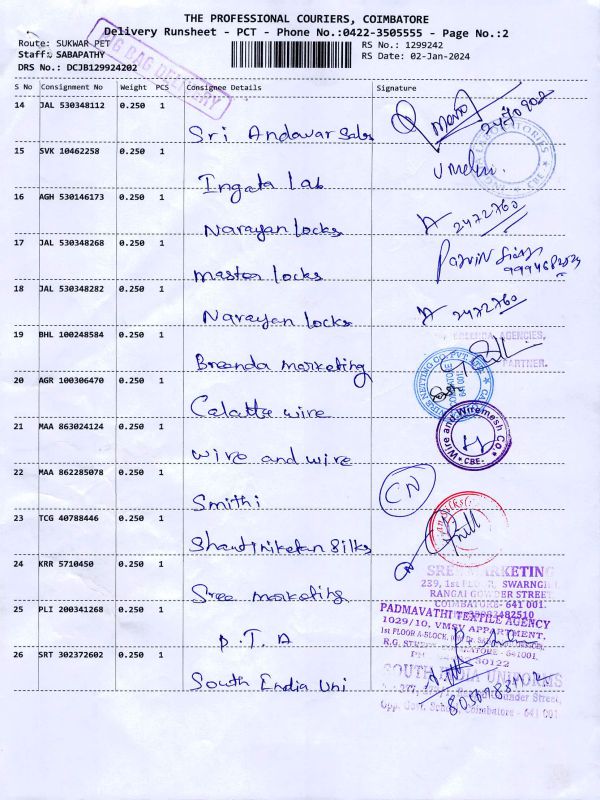 THE PROFESSIONAL COURIERS, COIMBATORE
Delivery Runsheet - PCT - Phone No.:0422-3505555 - Page No.:2
Route: SUKWAR PET
RS No.: 1299242
Staff: SABAPATHY
RS Date: 02-Jan-2024
DRS No.: DCJB129924202
BAG DELIVERY
S No Consignment No Weight PCS Consignee Details Signature
14 JAL 530348112 0.250 1
Sri Andavar Sales
15 SVK 10462258 0.250 1
Ingata Lab
16 AGH 530146173 0.250 1
Narayan Locks 2472760
17 JAL 530348268 0.250 1
Master Locks
18 JAL 530348282 0.250 1
Narayan Locks 2472760
19 BHL 100248584 0.250 1
AGENCIES,
PARTNER.
Brenda marketing
20 AGR 100306470 0.250 1
NETTING CO. PVT.
COIMBATORE
641 001
Calatta wire
21 MAA 863024124 0.250 1
Wire and Wiremesh Co.
CBE-
wire and wire
22 MAA 862285078 0.250 1
CN
Smithi
23 TCG 40788446 0.250 1
Silks
Shantiniketan Silks
24 KRR 5710450 0.250 1
CN
SREE MARKETING
239, 1st SWARNG
RANGAI GOWDER STREET
COIMBATORE- 641 001.
Sree marketing
25 PLI 200341268 0.250 1
PADMAVATHI TEXTILE AGENCY
1029/10, VMSV APPARTMENT,
1st FLOOR A-BLOCK,
P.T.A
26 SRT 302372602 0.250 1
SOUTH INDIA UNIFORMS
Opp. Govt. Coimbatore - 641 001
South Endia Uni